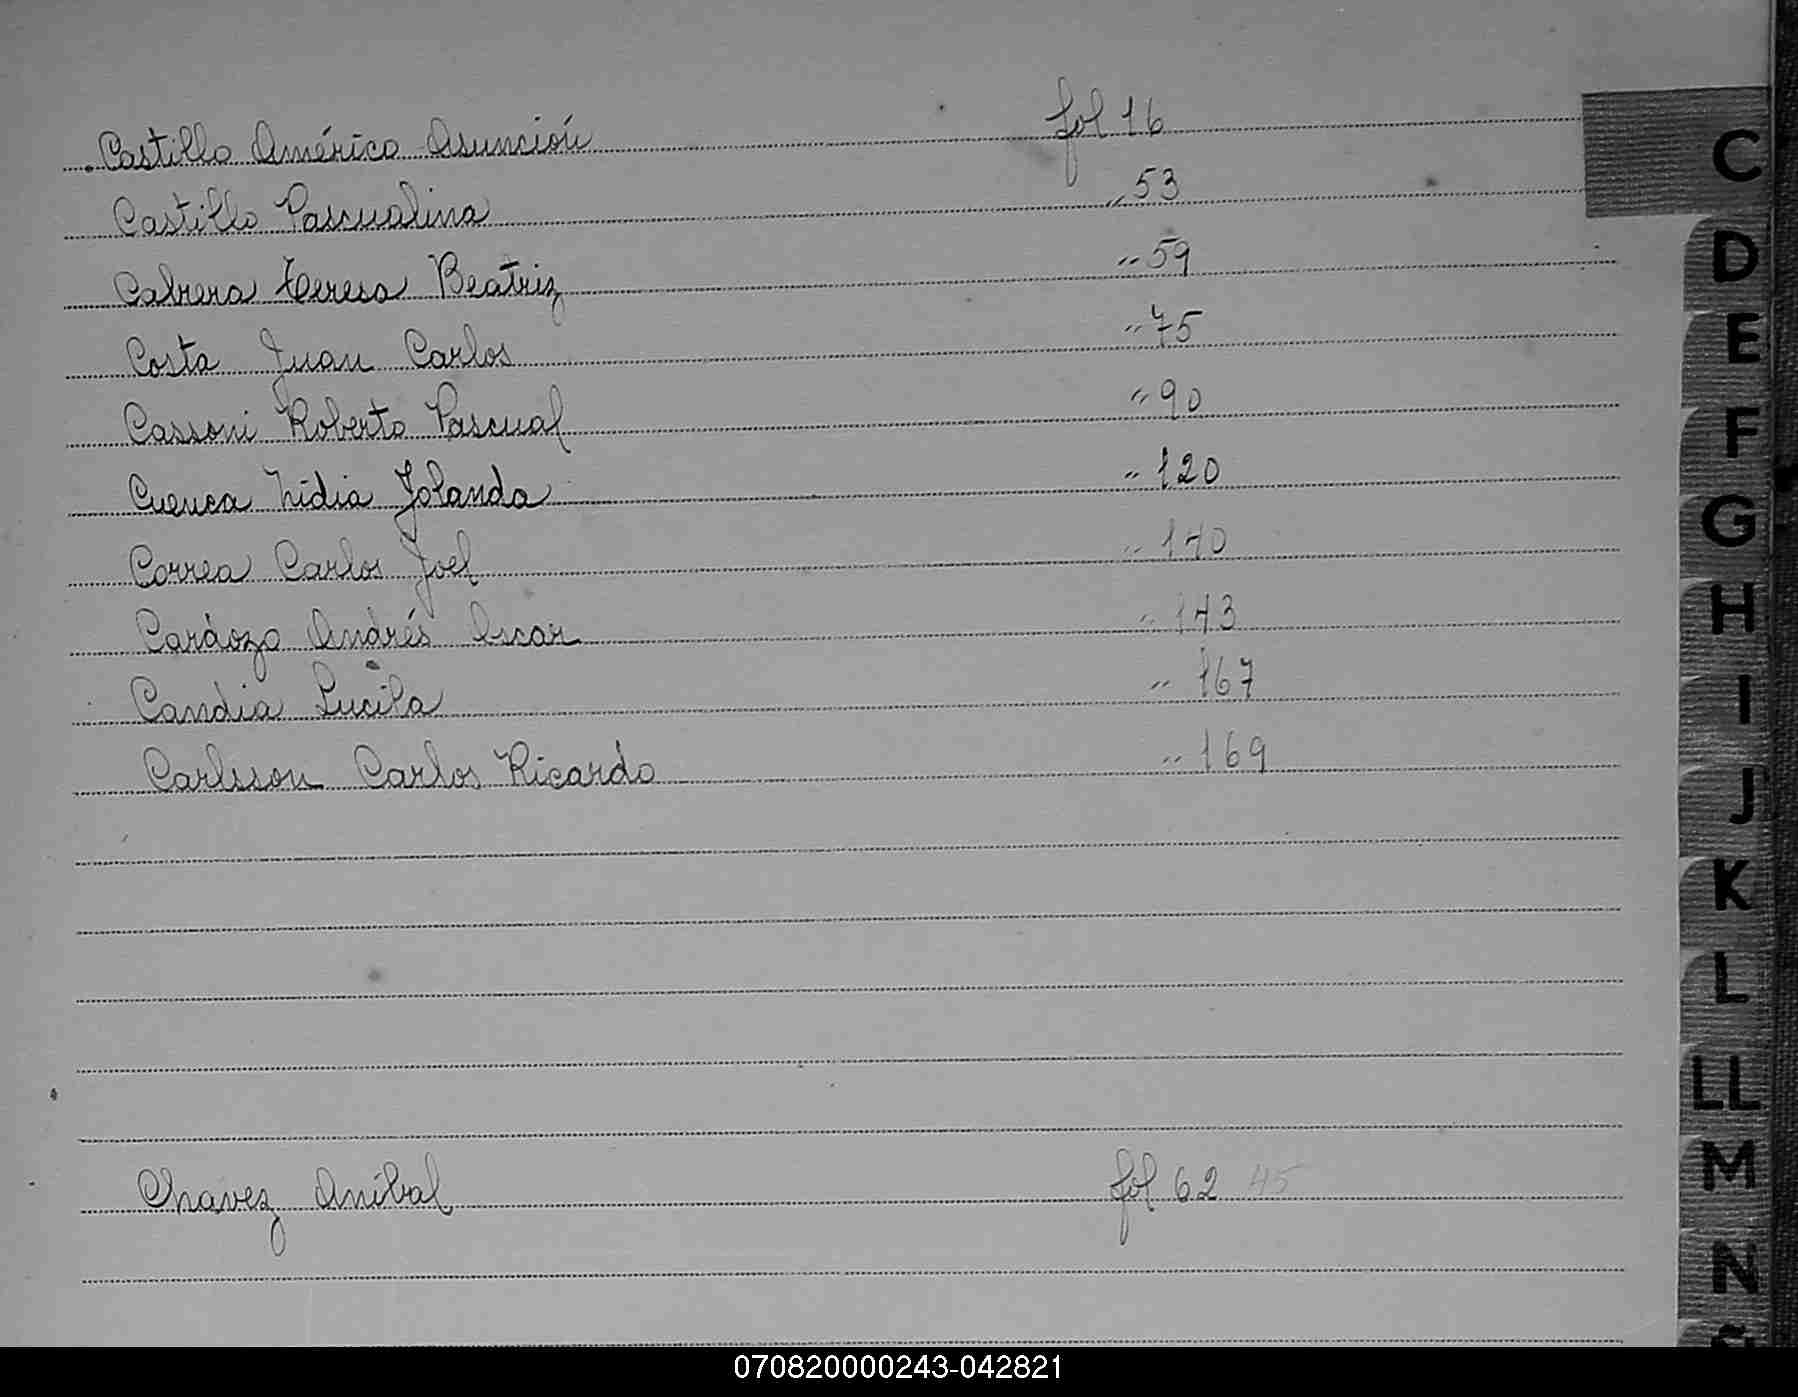 Castillo Américo Asunción fol 16
Castillo Pascualina " 53
Cabrera Teresa Beatriz " 59
Costa Juan Carlos " 75
Cassoni Roberto Pascual " 90
Cuenca Nidia Yolanda " 120
Correa Carlos Joel " 140
Cardozo Andrés Oscar " 143
Candia Lucila " 167
Carlsson Carlos Ricardo " 169
Chavez Aníbal fol 62 45
C
D
E
F
G
H
I
J
K
L
LL
M
N
070820000243-042821